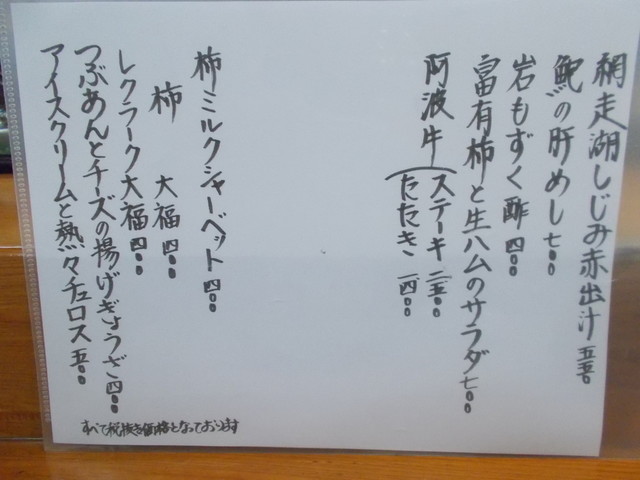 網走湖しじみ赤出汁 五五〇
鮑の肝めし 七〇〇
岩もずく酢 四〇〇
富有柿と生ハムのサラダ 七〇〇
阿波牛
ステーキ 二五〇〇
たたき 一四〇〇
柿ミルクシャーベット 四〇〇
柿 大福 四〇〇
レクラーク大福 四〇〇
つぶあんとチーズの揚げぎょうざ 四〇〇
アイスクリームと熱々チュロス 五〇〇
すべて税抜き価格となっております